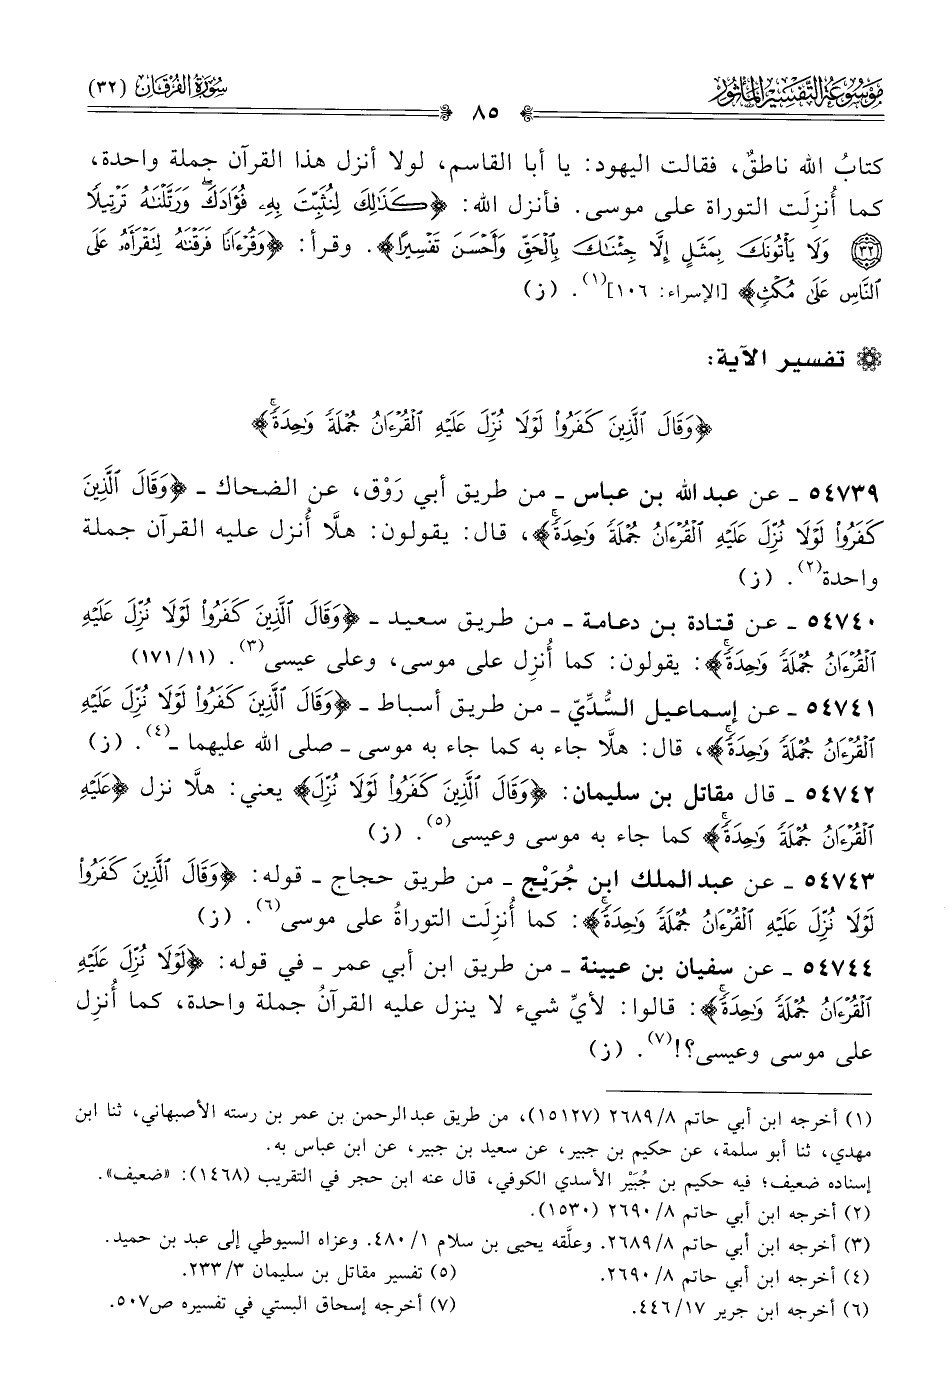 موسوعة التفسير المأثور
٨٥
سورة الفرقان (٣٢)
كتابُ الله ناطقٌ، فقالت اليهود: يا أبا القاسم، لولا أنزل هذا القرآن جملة واحدة،
كما أُنزِلَت التوراة على موسى. فأنزل الله: ﴿كَذَٰلِكَ لِنُثَبِّتَ بِهِۦ فُؤَادَكَۖ وَرَتَّلْنَٰهُ تَرْتِيلًا
﴿٣٢﴾ وَلَا يَأْتُونَكَ بِمَثَلٍ إِلَّا جِئْنَٰكَ بِٱلْحَقِّ وَأَحْسَنَ تَفْسِيرًا﴾. وقرأ: ﴿وَقُرْءَانًا فَرَقْنَٰهُ لِتَقْرَأَهُۥ عَلَى
ٱلنَّاسِ عَلَىٰ مُكْثٍ﴾ [الإسراء: ١٠٦](١). (ز)
تفسير الآية:
﴿وَقَالَ ٱلَّذِينَ كَفَرُوا۟ لَوْلَا نُزِّلَ عَلَيْهِ ٱلْقُرْءَانُ جُمْلَةً وَٰحِدَةًۚ﴾
٥٤٧٣٩ ـ عن عبد الله بن عباس ـ من طريق أبي رَوْق، عن الضحاك ـ ﴿وَقَالَ ٱلَّذِينَ
كَفَرُوا۟ لَوْلَا نُزِّلَ عَلَيْهِ ٱلْقُرْءَانُ جُمْلَةً وَٰحِدَةًۚ﴾، قال: يقولون: هلَّا أُنزل عليه القرآن جملة
واحدة(٢). (ز)
٥٤٧٤٠ ـ عن قتادة بن دعامة ـ من طريق سعيد ـ ﴿وَقَالَ ٱلَّذِينَ كَفَرُوا۟ لَوْلَا نُزِّلَ عَلَيْهِ
ٱلْقُرْءَانُ جُمْلَةً وَٰحِدَةًۚ﴾: يقولون: كما أُنزِل على موسى، وعلى عيسى(٣). (١٧١/١١)
٥٤٧٤١ ـ عن إسماعيل السُّدِّيّ ـ من طريق أسباط ـ ﴿وَقَالَ ٱلَّذِينَ كَفَرُوا۟ لَوْلَا نُزِّلَ عَلَيْهِ
ٱلْقُرْءَانُ جُمْلَةً وَٰحِدَةًۚ﴾، قال: هلَّا جاء به كما جاء به موسى ـ صلى الله عليهما ـ(٤). (ز)
٥٤٧٤٢ ـ قال مقاتل بن سليمان: ﴿وَقَالَ ٱلَّذِينَ كَفَرُوا۟ لَوْلَا نُزِّلَ﴾ يعني: هلَّا نزل ﴿عَلَيْهِ
ٱلْقُرْءَانُ جُمْلَةً وَٰحِدَةًۚ﴾ كما جاء به موسى وعيسى(٥). (ز)
٥٤٧٤٣ ـ عن عبد الملك ابن جُرَيْج ـ من طريق حجاج ـ قوله: ﴿وَقَالَ ٱلَّذِينَ كَفَرُوا۟
لَوْلَا نُزِّلَ عَلَيْهِ ٱلْقُرْءَانُ جُمْلَةً وَٰحِدَةًۚ﴾: كما أُنزِلَت التوراةُ على موسى(٦). (ز)
٥٤٧٤٤ ـ عن سفيان بن عيينة ـ من طريق ابن أبي عمر ـ في قوله: ﴿لَوْلَا نُزِّلَ عَلَيْهِ
ٱلْقُرْءَانُ جُمْلَةً وَٰحِدَةًۚ﴾: قالوا: لأيِّ شيء لا ينزل عليه القرآنُ جملة واحدة، كما أُنزِل
على موسى وعيسى؟!(٧). (ز)
(١) أخرجه ابن أبي حاتم ٢٦٨٩/٨ (١٥١٢٧)، من طريق عبد الرحمن بن عمر بن رسته الأصبهاني، ثنا ابن
مهدي، ثنا أبو سلمة، عن حكيم بن جبير، عن سعيد بن جبير، عن ابن عباس به.
إسناده ضعيف؛ فيه حكيم بن جُبَيْر الأسدي الكوفي، قال عنه ابن حجر في التقريب (١٤٦٨): «ضعيف».
(٢) أخرجه ابن أبي حاتم ٢٦٩٠/٨ (١٥٣٠).
(٣) أخرجه ابن أبي حاتم ٢٦٨٩/٨. وعلَّقه يحيى بن سلام ٤٨٠/١. وعزاه السيوطي إلى عبد بن حميد.
(٤) أخرجه ابن أبي حاتم ٢٦٩٠/٨. (٥) تفسير مقاتل بن سليمان ٢٣٣/٣.
(٦) أخرجه ابن جرير ٤٤٦/١٧. (٧) أخرجه إسحاق البستي في تفسيره ص٥٠٧.